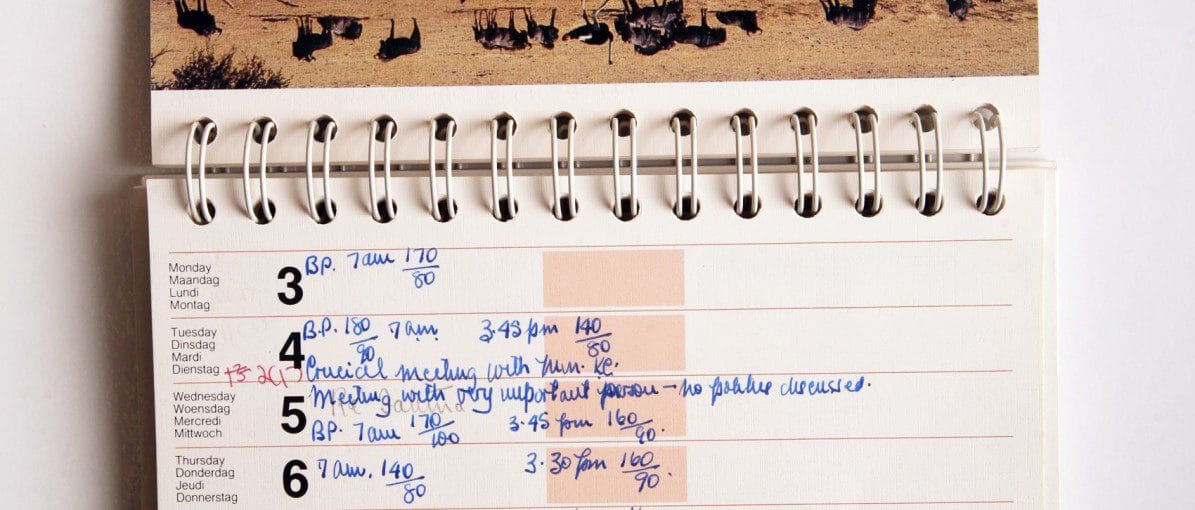 Monday
Maandag
Lundi
Montag
3
BP. 7am 170/80
Tuesday
Dinsdag
Mardi
Dienstag
4
B.P. 180/90 7am. 3.45 pm 140/80
Crucial meeting with Min. KC.
Wednesday
Woensdag
Mercredi
Mittwoch
5
Meeting with very important person – no politics discussed.
BP. 7am 170/100 3.45 pm 160/90.
Thursday
Donderdag
Jeudi
Donnerstag
6
7am. 140/80 3.30 pm 160/90.